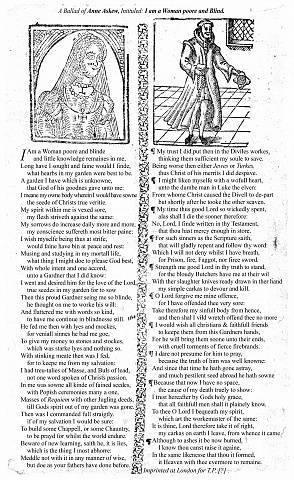 A Ballad of Anne Askew, Intituled: I am a Woman poore and Blind.
I Am a Woman poore and blinde
and little knowledge remaines in me,
Long have I sought and faine would I finde,
what hearbs in my garden were best to be.
A garden I have which is unknowne,
that God of his goodnes gave unto me:
I meane my owne body wherein I would have sowne
the seede of Christs true veritie.
My spirit within me is vexed sore,
my flesh striveth against the same:
My sorrows do increase daily more and more,
my conscience suffereth most bitter paine:
I with myselfe being thus at strife,
would faine have bin at peace and rest:
Musing and studying in my mortall life,
what thing I might doe to please God best,
With whole intent and one accord,
unto a Gardner that I did know:
I went and desired him for the love of the Lord
true seedes in my garden for to sow
Then this proud Gardner seeing me so blinde,
he thought on me to worke his will:
And flattered me with words so kind,
to have me continue in blindnesse still.
He fed me then with lyes and mockes,
for veniall sinnes he bad me goe,
To give my money to stones and stockes,
which was starke lyes and nothing so.
With stinking meate then was I fed,
for to keepe me from my salvation:
I had trentales of Masse, and Buls of lead,
not one word spoken of Christs passion,
In me was sowne all kinde of fained seedes,
with Popish ceremonies many a one,
Masses of Requiem with other Jugling deeds,
till Gods spirit out of my garden was gone.
Then was I commaunded full straigtly,
if of my salvation I would be sure:
To build some Chappell, or some Chauntry,
to be prayd for whilst the world endure.
Beware of new learning, saith he, it is lies,
which is the thing I most abhorre:
Meddle not with it in any manner of wise,
but doe as your fathers have done before.
¶ My trust I did put then in the Divels workes,
thinking them sufficient my soule to save.
Being worse then either Jewes or Turkes,
thus Christ of his merits I did despave.
¶ I might liken myselfe with a wofull heart,
unto the dumbe man in Luke the elven:
From whome Christ caused the Divell to depart
but shortly after he tooke the other seaven.
¶ My time thus good Lord so wickedly spent,
alas shall I die the sooner therefore:
No, Lord, I finde written in thy Testament,
that thou hast mercy enough in store.
¶ For such sinners as the Scripture saith,
that will gladly repent and follow thy word
Which I will not deny whilst I have breath,
for Prison, fire, Faggot, nor firee sword.
¶ Strength me good Lord in thy truth to stand,
for the bloudy Butchers have me at their wil
With ther slaughter knives ready drawn in ther hand
my simple carkas to devour and kill.
¶ O Lord forgive me mine offence,
for I have offended thee very sore:
Take therefore my sinful body from hence,
and then shal I vild wretch offend thee no more
¶ I would wish all christians & faithfull friends
to keepe them from this Gardners hands,
For he will bring them soone unto their ends,
with cruell torments of fierce firebrands.
¶ I dare not presume for him to pray,
because the truth of him was well knowne:
And since that time he hath gone astray,
and much pestilent seed abroad he hath sowne
¶ Because that now I have no space,
the cause of my death truely to show:
I trust hereafter by Gods holy grace,
that all faithfull men shall it plainely know,
To thee O Lord I bequeath my spirit,
which art the workemaster of the same:
It is thine, Lord therefore take it of right,
my carkas on earth I leave, from whence it came
¶ Although to ashes it be now burned,
I know thou canst raise it againe,
In the same likenesse that thou it formed,
it Heaven with thee evermore to remaine.
Imprinted at London for T.P.[?]